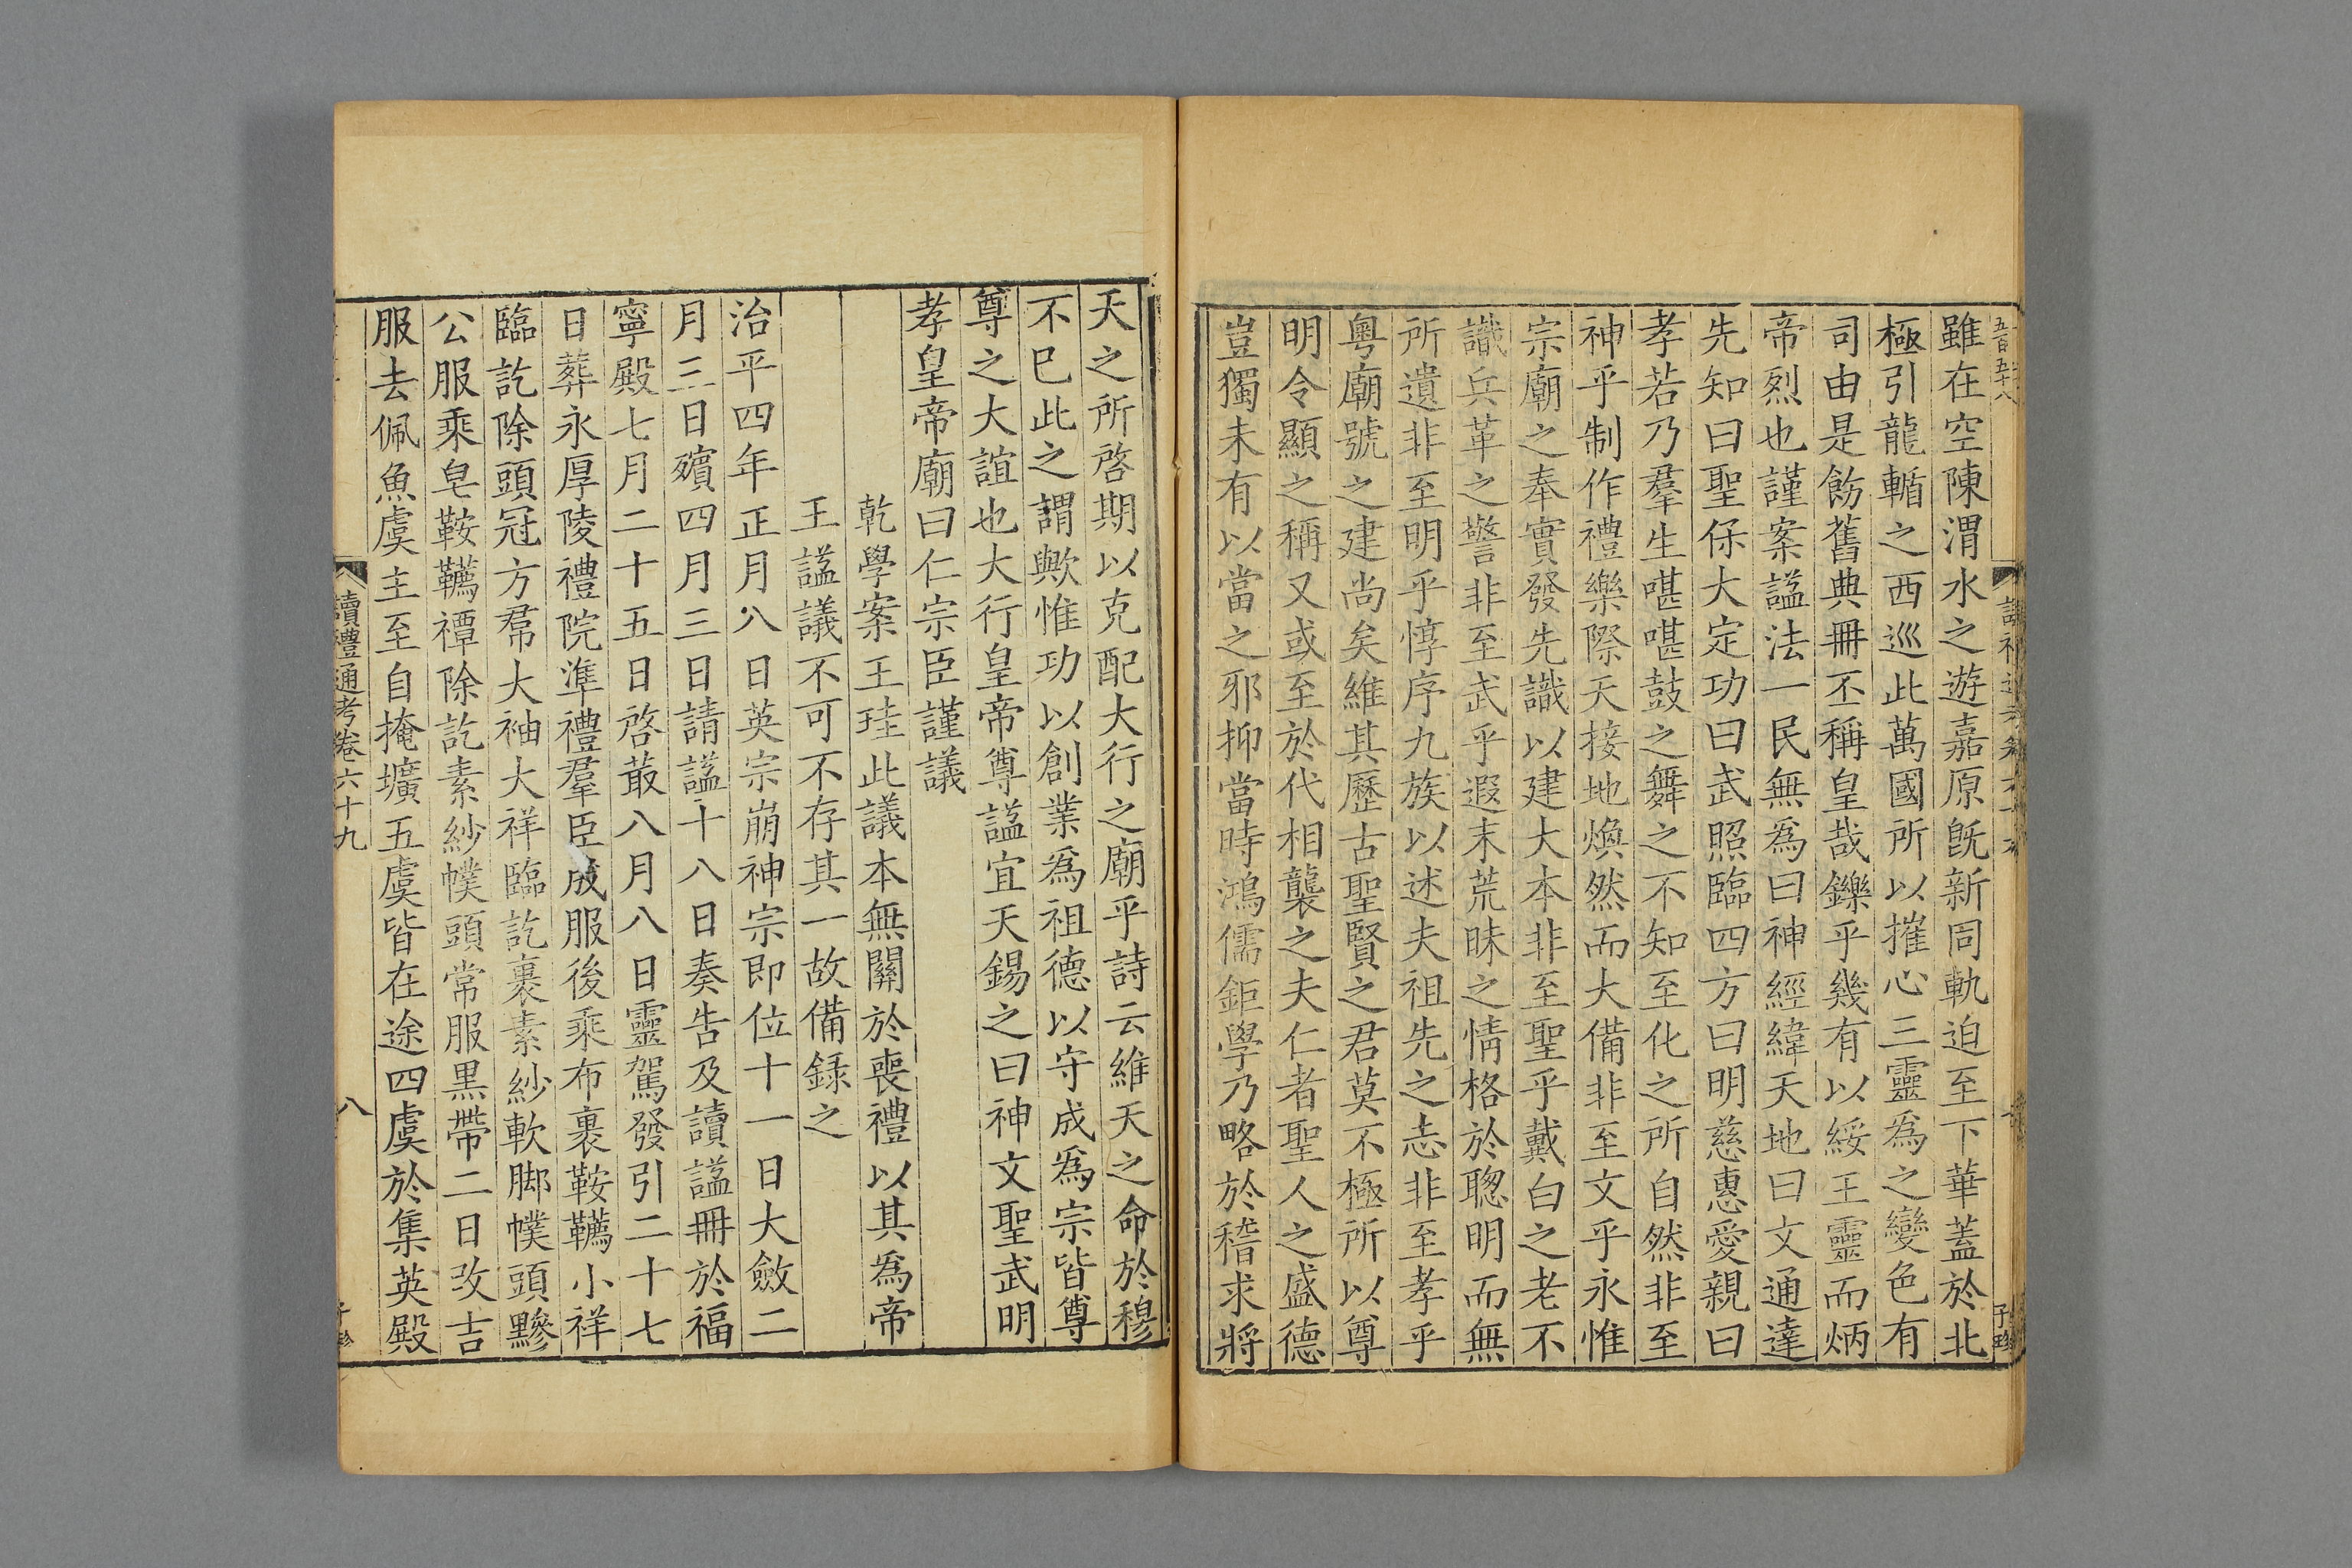 五百五十八
雖在空陳渭水之遊嘉原旣新同軌迫至下華蓋於北
極引龍輴之西巡此萬國所以摧心三靈爲之變色有
司由是飭舊典冊丕稱皇哉鑠乎幾有以綏王靈而炳
帝烈也謹案諡法一民無爲曰神經緯天地曰文通達
先知曰聖保大定功曰武照臨四方曰明慈惠愛親曰
孝若乃羣生嘽嘽鼓之舞之不知至化之所自然非至
神乎制作禮樂際天接地煥然而大備非至文乎永惟
宗廟之奉實發先識以建大本非至聖乎戴白之老不
識兵革之警非至武乎遐末荒昧之情格於聰明而無
所遺非至明乎惇序九族以述夫祖先之志非至孝乎
粵廟號之建尚矣維其歷古聖賢之君莫不極所以尊
明令顯之稱又或至於代相襲之夫仁者聖人之盛德
豈獨未有以當之邪抑當時鴻儒鉅學乃略於稽求將
天之所啓期以克配大行之廟乎詩云維天之命於穆
不已此之謂歟惟功以創業爲祖德以守成爲宗皆尊
尊之大誼也大行皇帝尊諡宜天錫之曰神文聖武明
孝皇帝廟曰仁宗臣謹議
乾學案王珪此議本無關於喪禮以其爲帝
王諡議不可不存其一故備錄之
治平四年正月八日英宗崩神宗即位十一日大斂二
月三日殯四月三日請諡十八日奏告及讀諡冊於福
寧殿七月二十五日啓菆八月八日靈駕發引二十七
日葬永厚陵禮院準禮羣臣成服後乘布裹鞍韉小祥
臨訖除頭冠方帬大袖大祥臨訖裹素紗軟脚幞頭黲
公服乘皂鞍韉禫除訖素紗幞頭常服黑帶二日改吉
服去佩魚虞主至自掩壙五虞皆在途四虞於集英殿
讀禮通考卷六十九
八